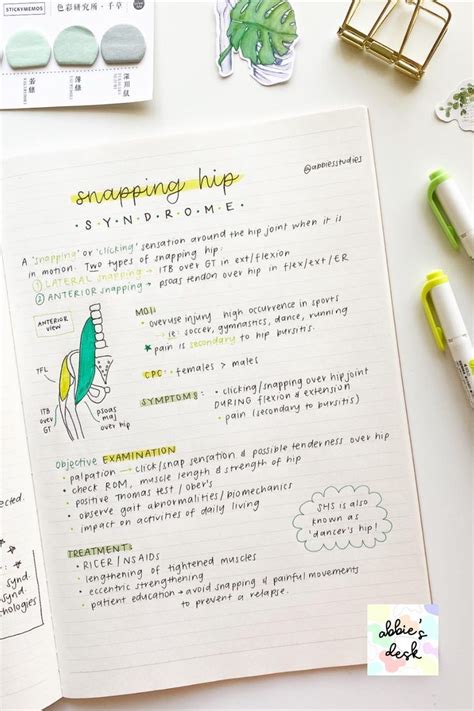 STICKYMEMOS
色彩研究所・千草
@abbiesstudies
snapping hip
S•Y•N•D•R•O•M•E
A "snapping" or "clicking" sensation around the hip joint when it is
in motion. Two types of snapping hip:
① LATERAL snapping → ITB over GT in ext/flexion
② ANTERIOR snapping → psoas tendon over hip in flex/ext/ER
ANTERIOR
VIEW
TFL
ITB
over
GT
psoas
maj
over hip
MOI:
• overuse injury high occurrence in sports
→ ie: soccer, gymnastics, dance, running
★ pain is secondary to hip bursitis.
CPC: females > males
SYMPTOMS: • clicking/snapping over hip joint
DURING flexion & extension
• pain (secondary to bursitis)
Objective EXAMINATION
• palpation → click/snap sensation & possible tenderness over hip
• check ROM, muscle length & strength of hip
• positive Thomas test / ober's
• observe gait abnormalities/biomechanics
• impact on activities of daily living
SHS is also
known as
'dancer's hip!
TREATMENT:
• RICER / NSAIDS
• lengthening of tightened muscles
• eccentric strengthening
• patient education → avoid snapping & painful movements
to prevent a relapse.
abbie's
desk